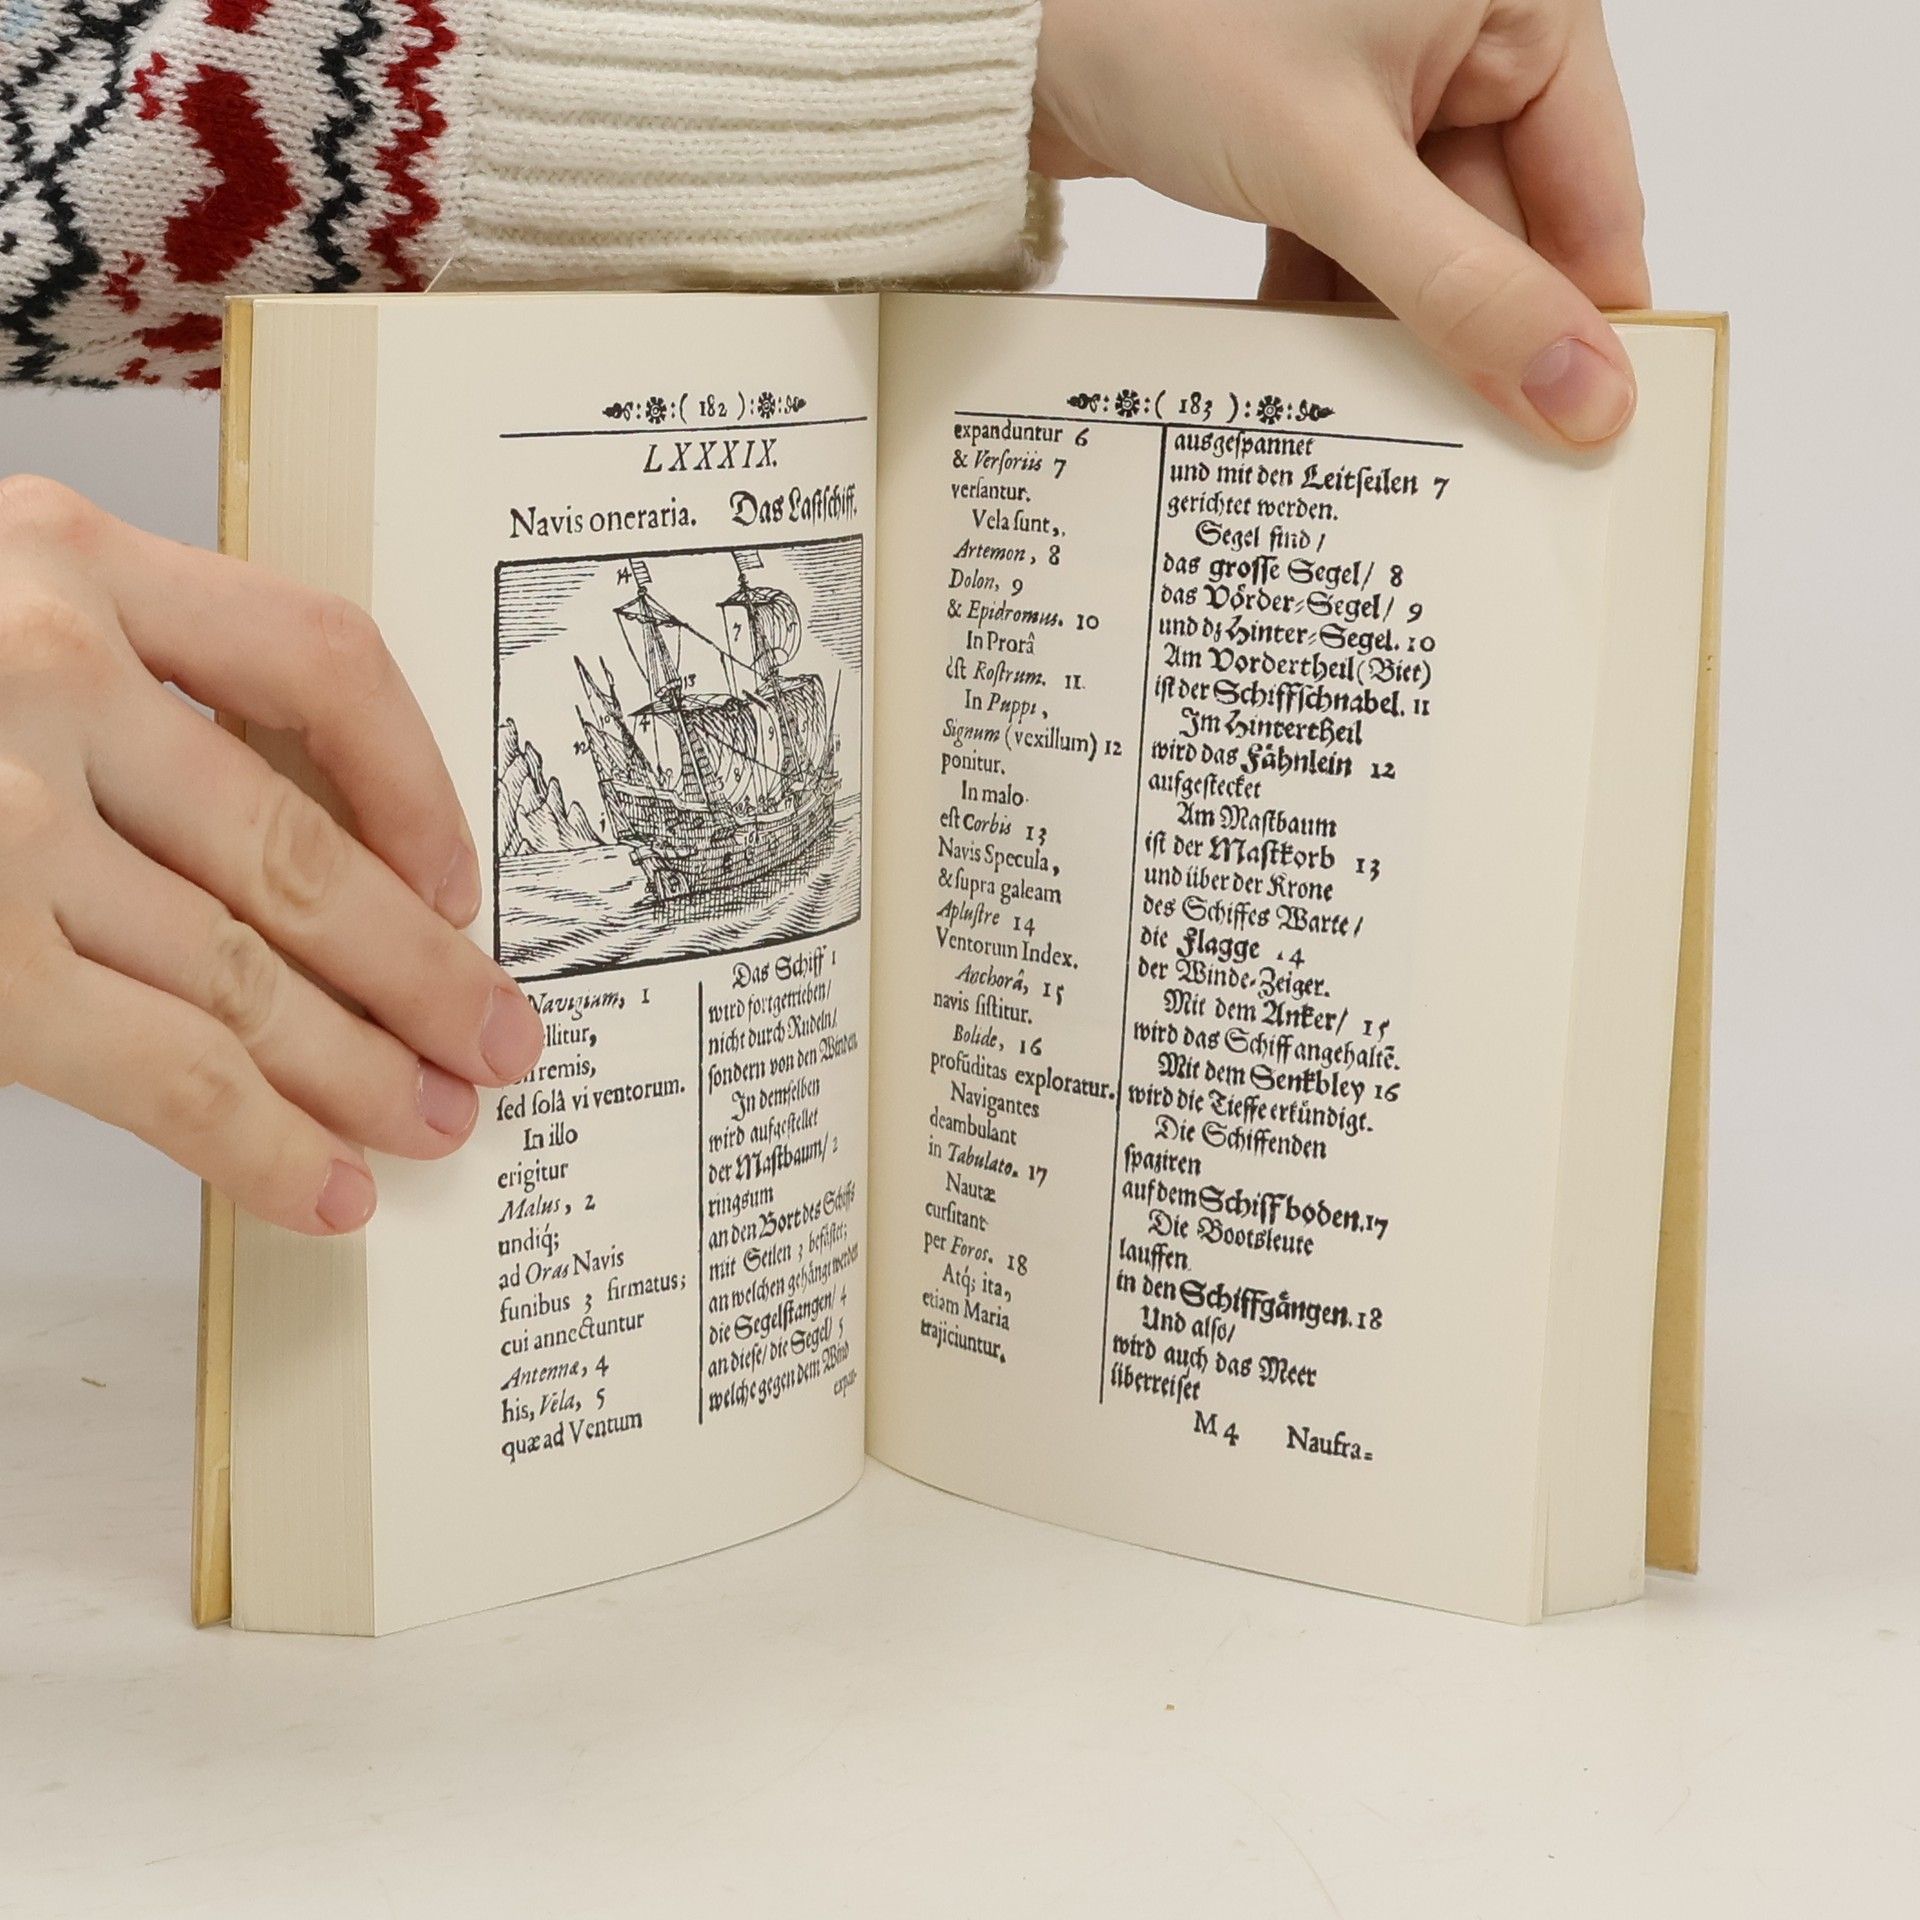 :( 182 ):
LXXXIX.
Navis oneraria. Das Lastschiff.
Navigium, 1
llitur,
remis,
ſed ſolâ vi ventorum.
In illo
erigitur
Malus, 2
undiq́;
ad Oras Navis
funibus 3 firmatus;
cui annectuntur
Antennæ, 4
his, Vela, 5
quæ ad Ventum
Das Schiff 1
wird fortgetrieben/
nicht durch Rudeln/
ſondern von den Winden.
In demſelben
wird aufgeſtellet
der Maſtbaum/ 2
ringsum
an den Bort des Schiffs
mit Seilen 3 befäſtet;
an welchen gehängt werden
die Segelſtangen/ 4
an dieſe/ die Segel/ 5
welche gegen dem Wind
expan-
:( 183 ):
expanduntur 6
& Verſoriis 7
verſantur.
Vela ſunt,
Artemon, 8
Dolon, 9
& Epidromus. 10
In Prorâ
eſt Roſtrum. 11.
In Puppi,
Signum (vexillum) 12
ponitur.
In malo
eſt Corbis 13
Navis Specula,
& ſupra galeam
Apluſtre 14
Ventorum Index.
Anchorâ, 15
navis ſiſtitur.
Bolide, 16
profūditas exploratur.
Navigantes
deambulant
in Tabulato. 17
Nautæ
curſitant
per Foros. 18
Atq́; ita,
etiam Maria
trajiciuntur.
ausgeſpannet
und mit den Leitſeilen 7
gerichtet werden.
Segel ſind /
das groſſe Segel/ 8
das Vörder-Segel/ 9
und dz Hinter-Segel. 10
Am Vordertheil (Biet)
iſt der Schiffſchnabel. 11
Im Hintertheil
wird das Fähnlein 12
aufgeſtecket
Am Maſtbaum
iſt der Maſtkorb 13
und über der Krone
des Schiffes Warte /
die Flagge .4
der Winde-Zeiger.
Mit dem Anker/ 15
wird das Schiff angehaltē.
Mit dem Senkbley 16
wird die Tieffe erkündigt.
Die Schiffenden
ſpaziren
auf dem Schiffboden. 17
Die Bootsleute
lauffen
in den Schiffgängen. 18
Und alſo/
wird auch das Meer
überreiſet
M 4 Naufra-